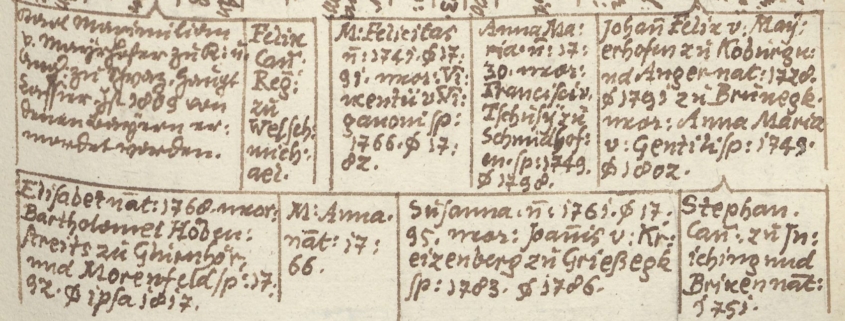 Karl Maximilian
v. Mayrhofer zu K: u:
Ang: zu Schwaz, Haupt
den Bayern er-
mordet worden.
Felix
Can:
Reg:
zu
Welsch-
mich-
ael.
M: Felicitas
n: 1741. ø 17:
91. mar: Vi-
centiu v Vi-
ganoni sp:
1766. ø 17:
82.
Anna Ma:
ria. n: 17:
30. mar:
Francisc v.
Tschusy zu
Schmidhof-
en. sp: 1749.
ø 1798.
Johañ Felix v. Maÿ:
erhofen zu Koburg u:
nd Anger nat: 1728.
ø 1791 zu Brunegk.
mar: Anna Maria
v: Gentili sp: 1749.
ø 1802.
Elisabet nat: 1768. mar:
Bartholomei Höben:
streits zu
und Morenfeld sp: 17:
92. ø ipsa 1817.
M: Anna.
nāt: 17:
66.
Susanna. n: 1761. ø 17.
95. mar: v: Kr:
eizenberg zu Grießegk
sp: 1783. ø 1786.
Stephan.
Can: zu In:
iching und
Brixen nāt:
1751.